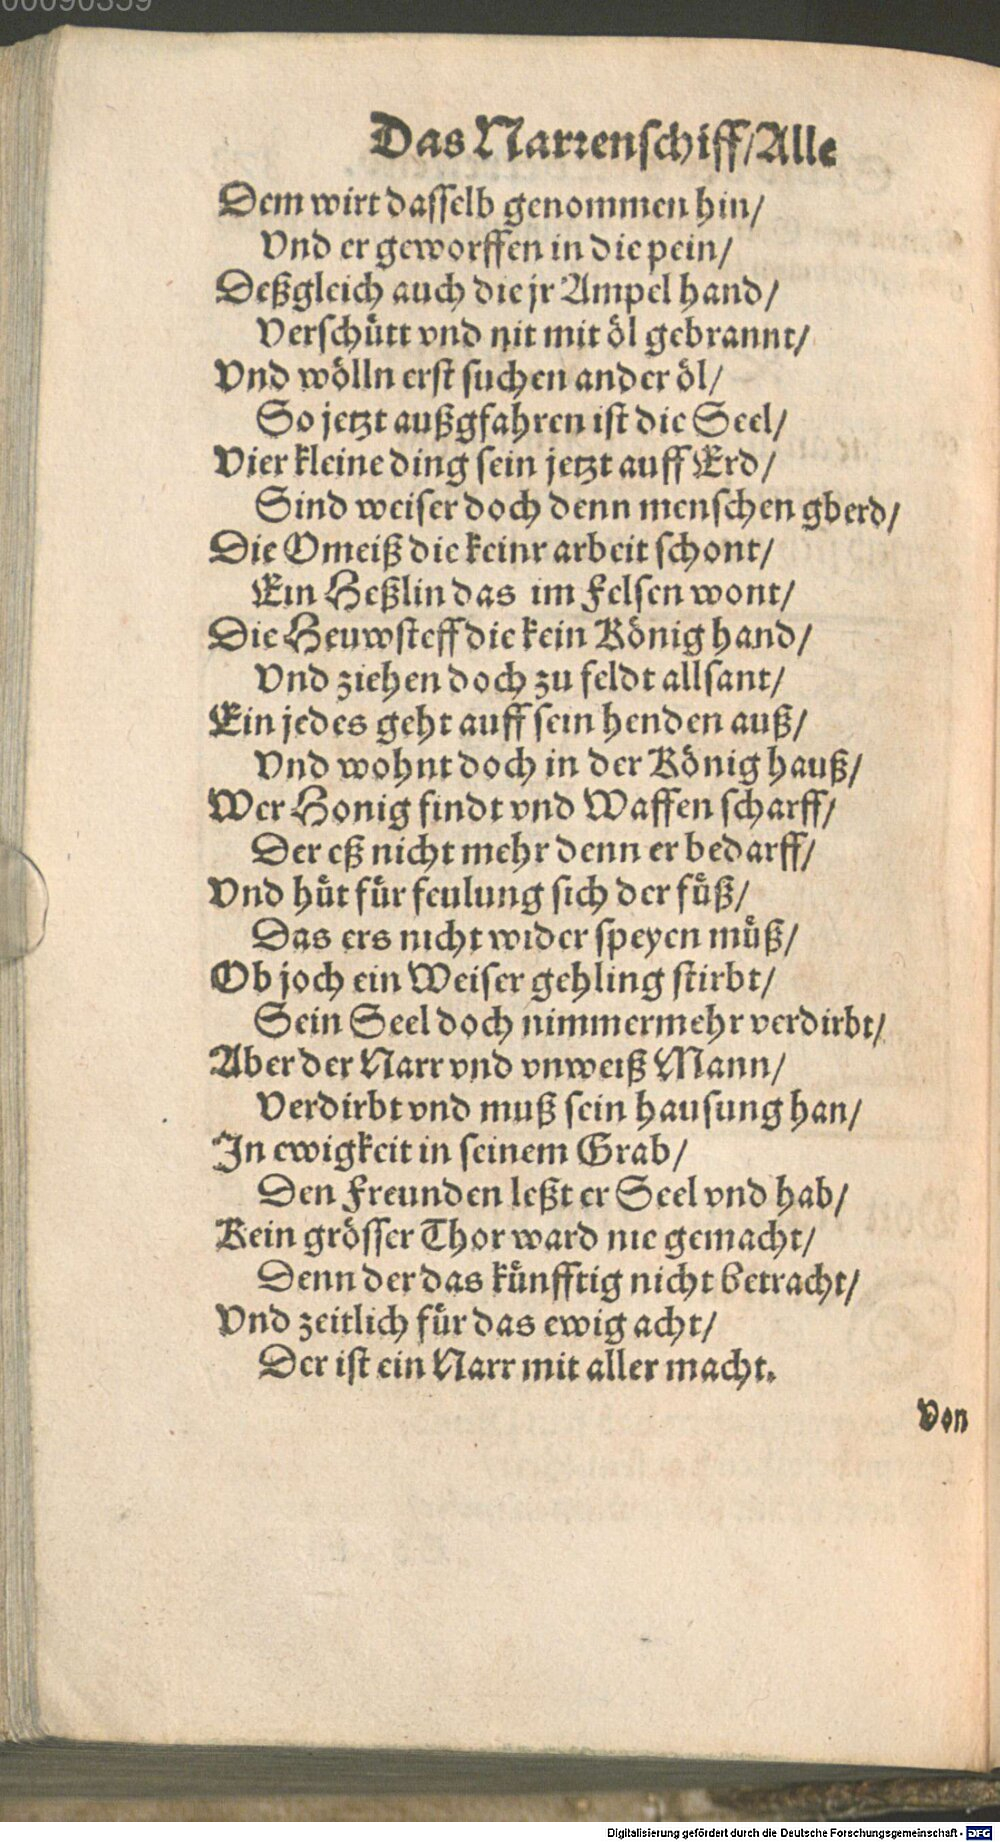 00090359
Das Narrenschiff/ Alle
Dem wirt dasselb genommen hin/
Vnd er geworffen in die pein/
Deßgleich auch die jr Ampel hand/
Verschütt vnd nit mit öl gebrannt/
Vnd wölln erst suchen ander öl/
So jetzt außgfahren ist die Seel/
Vier kleine ding sein jetzt auff Erd/
Sind weiser doch denn menschen gberd/
Die Omeiß die keinr arbeit schont/
Ein Heßlin das im Felsen wont/
Die Heuwsteff die kein König hand/
Vnd ziehen doch zu feldt allsant/
Ein jedes geht auff sein henden auß/
Vnd wohnt doch in der König hauß/
Wer Honig findt vnd Waffen scharff/
Der eß nicht mehr denn er bedarff/
Vnd hüt für feulung sich der füß/
Das ers nicht wider speyen müß/
Ob joch ein Weiser gehling stirbt/
Sein Seel doch nimmermehr verdirbt/
Aber der Narr vnd vnweiß Mann/
Verdirbt vnd muß sein hausung han/
In ewigkeit in seinem Grab/
Den Freunden leßt er Seel vnd hab/
Kein grösser Thor ward nie gemacht/
Denn der das künfftig nicht betracht/
Vnd zeitlich für das ewig acht/
Der ist ein Narr mit aller macht.
Von
Digitalisierung gefördert durch die Deutsche Forschungsgemeinschaft - DFG